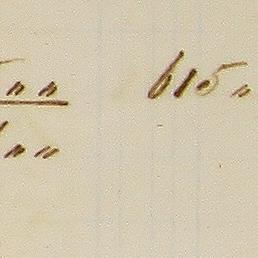 " " 615 "
" "